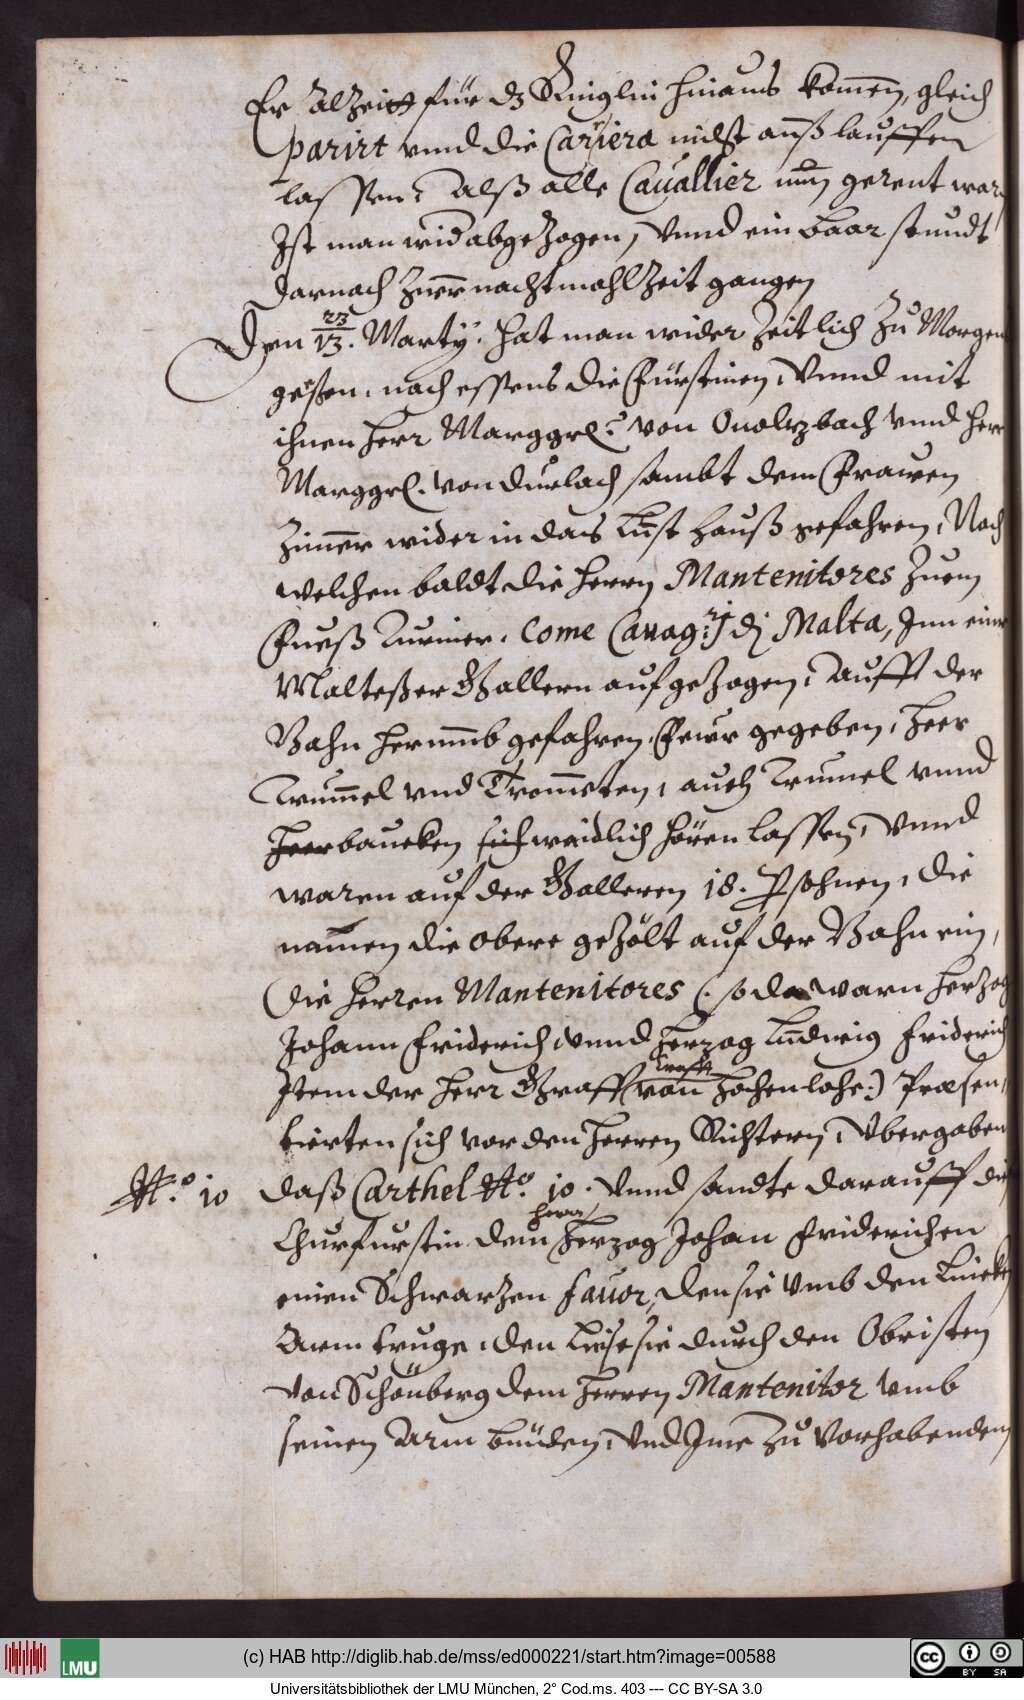 Er alzeit für dz Ringlin hinaus kommen, gleich
parirt vnnd die Cariera nicht auß lauffen
lassen. Alß alle Cauallier nun gerent war
Ist man wid abgezogen, Vnnd ein baar stundt
darnach zuer nachtmahlzeit gangen
Den 23/13. Martÿ. hat man wider Zeitlich zu Morgen
geßen, nach essens die Fürstinen, Vnnd mit
ihnen Herr Marggr. von Onolzbach vnnd Herr
Marggr. von Durlach sambt dem Frawen
Zimmer wider in das Lust hauß gefahren, Nach
welchen baldt die Herrn Mantenitores zuem
Fueß Turnier. Come Cauag:ri di Malta, Inn einer
Malteßer Gallern aufgezogen, Auff der
Bahn herumb gefahren, Feuwr gegeben, Heer
Trummel vnd Trommeten, auch Trumel vnnd
Heerbaucken sich weidlich hören lassen, Vnnd
waren auf der Galleren 18. Psohnen, die
namen die obere gezölt auf der Bahn ein,
Die Herren Mantenitores (: so da warn Herzog
Johann Friderich, vnnd Herzog Ludwig Friderich
Item der Herr Graff Crafft von Hochenlohe:) Præsen,
tierten sich vor den Herren Richtern, Vbergaben
No. 10
daß Carthel No. 10. Vnnd sandte darauff die
Churfurstin dem Herrn Herzog Johan Friderichen
einen Schwarzen fauor, den sie vmb den Lincken
Arm truge, den liese sie durch den Obristen
von Schönberg dem Herren Mantenitor vmb
seinen Arm binden, Vnd Ime zu vorhabendem
LMU
(c) HAB http://diglib.hab.de/mss/ed000221/start.htm?image=00588
cc BY SA
Universitätsbibliothek der LMU München, 2° Cod.ms. 403 --- CC BY-SA 3.0